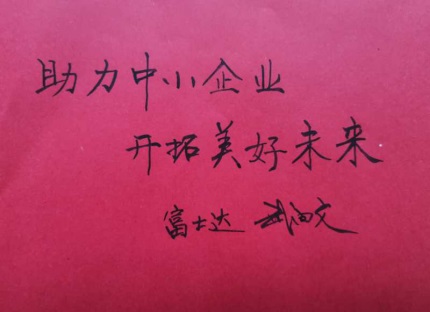 助力中小企业
开拓美好未来
富士达 武向文